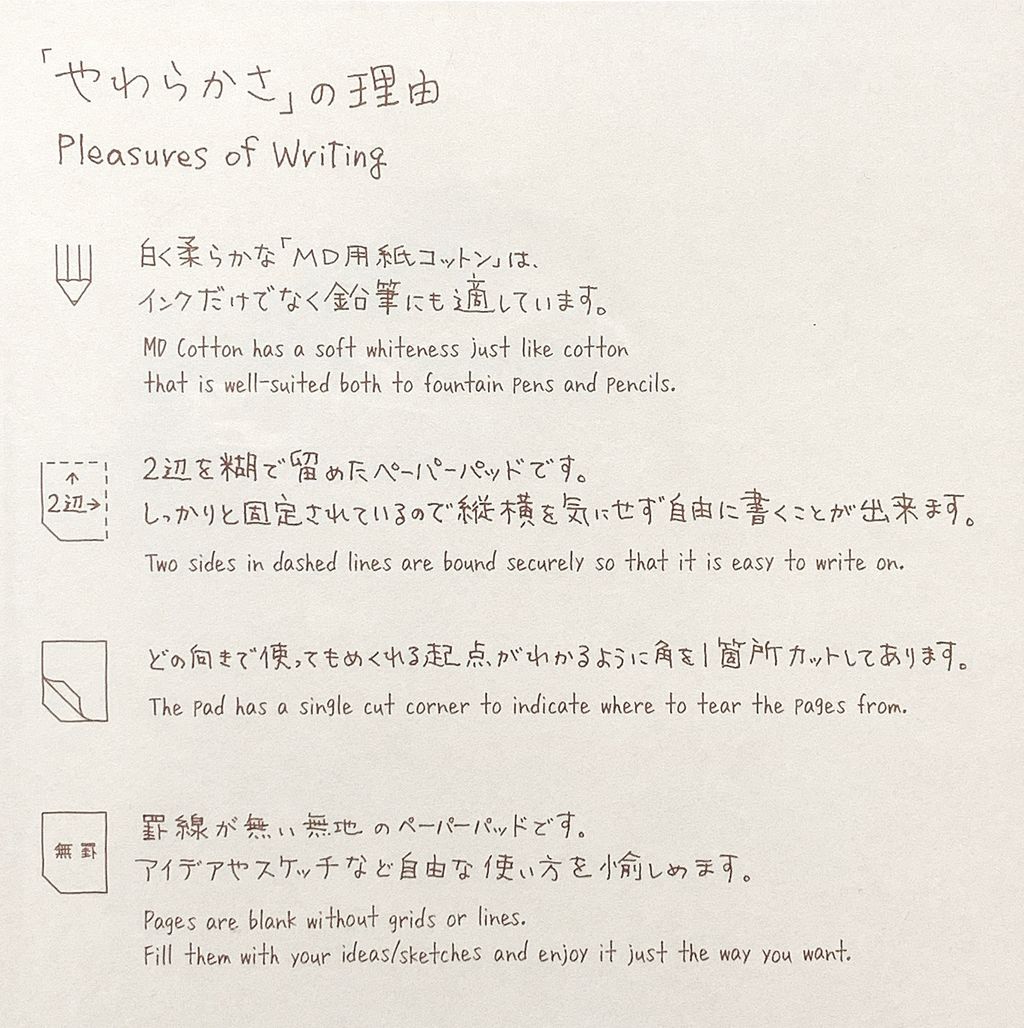 「やわらかさ」の理由
Pleasures of Writing
白く柔らかな「MD用紙コットン」は、
インクだけでなく鉛筆にも適しています。
MD Cotton has a soft whiteness just like cotton
that is well-suited both to fountain pens and pencils.
2辺
2辺を糊で留めたペーパーパッドです。
しっかりと固定されているので縦横を気にせず自由に書くことが出来ます。
Two sides in dashed lines are bound securely so that it is easy to write on.
どの向きで使ってもめくれる起点がわかるように角を1箇所カットしてあります。
The pad has a single cut corner to indicate where to tear the pages from.
無罫
罫線が無い無地のペーパーパッドです。
アイデアやスケッチなど自由な使い方を愉しめます。
Pages are blank without grids or lines.
Fill them with your ideas/sketches and enjoy it just the way you want.